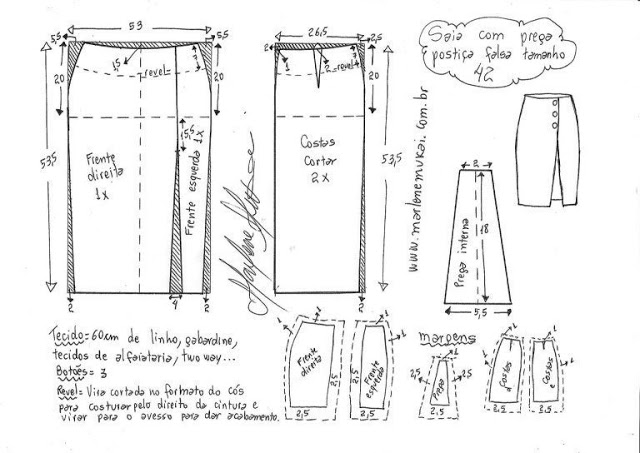 Saia com prega
postiça falsa tamanho
42
53
5,5
5,5
20
20
53,5
1,5
revel
3
5,5
Frente
direita
1x
Frente esquerda 1x
2
4
2
26,5
2,5
2
1
2
revel
3
20
53,5
Costas
Cortar
2x
2
www.marlenemukai.com.br
2
18
Prega interna
5,5
Tecido= 60cm de linho, gabardine,
tecidos de alfaiataria, two way...
Botões= 3
Revel= Vira cortada no formato do cós
para costurar pelo direito da cintura e
virar para o avesso para dar acabamento.
margens
1
1
Frente
direita
2,5
2,5
1
1
Frente
esquerda
2,5
1
2,5
Prega
2,5
2,5
1
1
Costas
2,5
2,5
1
1
Costas
e
2,5